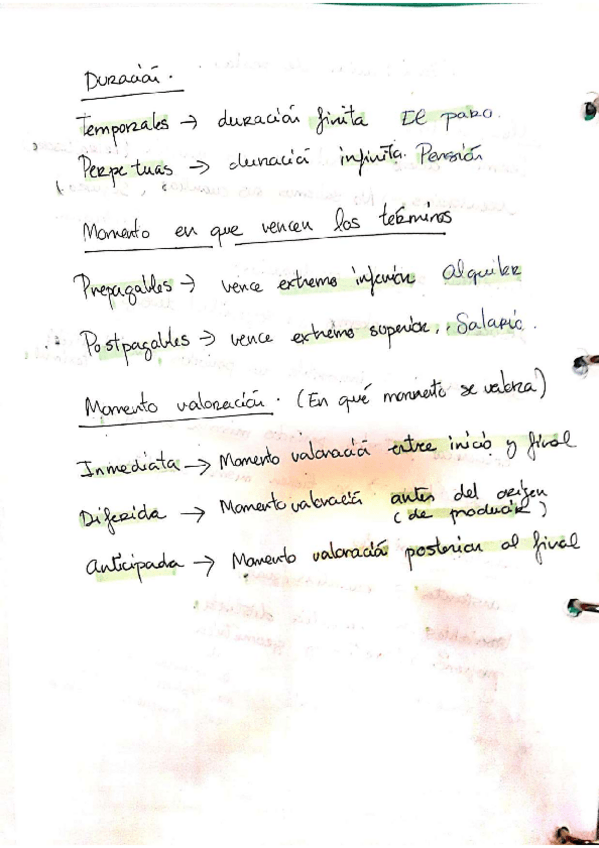 Duración.
Temporales → duración finita El paro.
Perpetuas → duración infinita. Pensión
Momento en que vencen los términos
Prepagables → vence extremo inferior alquiler
Postpagables → vence extremo superior. Salario.
Momento valoración. (En qué momento se valora)
Inmediata → Momento valoración entre inicio y final
Diferida → Momento valoración antes del origen
(de producir)
Anticipada → Momento valoración posterior al final